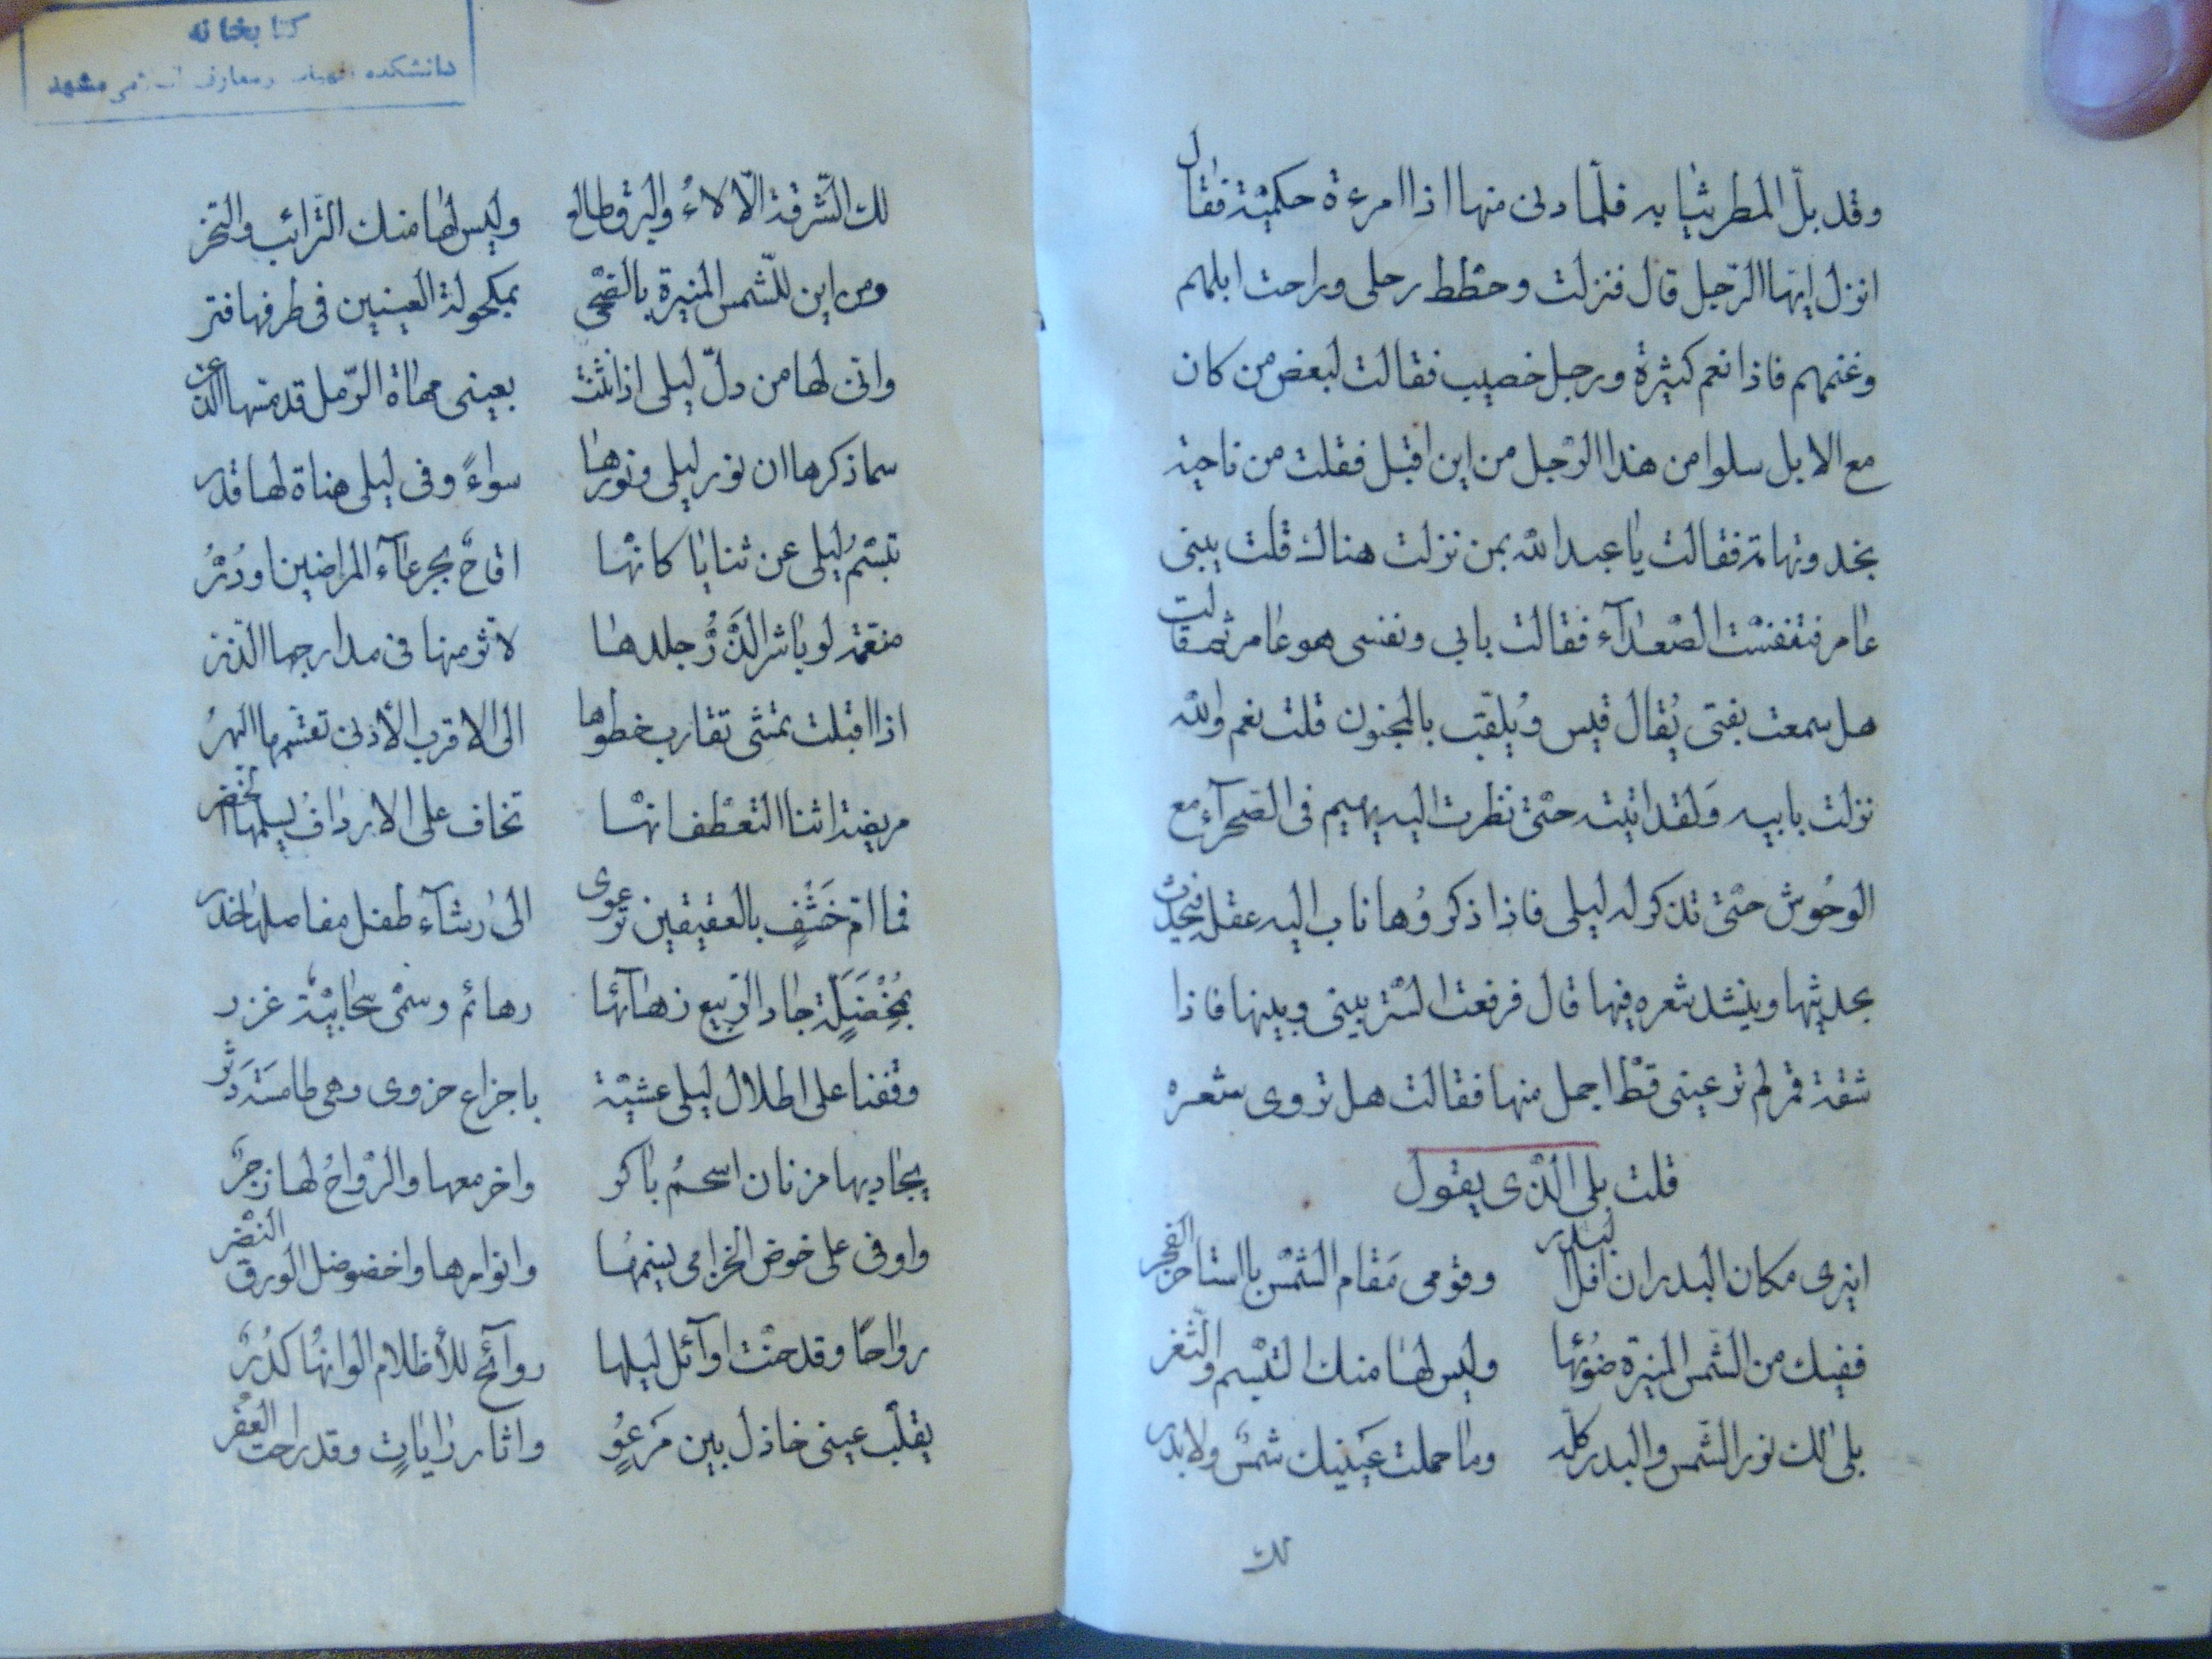 وقد بلّ المطر ثيابه فلمّا دنى منها اذا امرءة حكميّة فقال
انزل ايّها الرّجل قال فنزلت وحطط رحلى وراحت ابلهم
وغنمهم فاذا نعم كثيرة ورجل خصيب فقالت لبعض من كان
مع الابل سلوا من هذا الرّجل من اين اقبل فقلت من ناحية
نجد وتهامة فقالت يا عبد الله بمن نزلت هناك قلت ببنى
عامر فتنفّست الصّعدآء فقالت بابى ونفسى هو عامر ثم قالت
هل سمعت بفتى يُقال قيس ويُلقّب بالمجنون قلت نعم والله
نزلت بابيه وَلقد اتيته حتّى نظرت اليه يهيم فى الصّحرآء مع
الوحُوش حتّى تذكر له ليلى فاذا ذكروُها ناب اليه عقله فيحدّث
بحديثها وينشد شعره فيها قال فرفعت السّتر بينى وبينها فاذا
شقة قمر لم تر عينى قطّ اجمل منها فقالت هل تروى شعره
قلت بلى الّذى يقول
انيرى مكان البدر ان افل البدر وقومى مَقام الشّمس ما استاخر الفجر
ففيك من الشّمس المنيرة ضوئها وليس لها منك التبسّم والثّغر
بلى لك نور الشّمس والبدر كلّه وما حملت عَينيك شمسٌ ولا بدر
لك
كتابخانه
دانشكده الهيات ومعارف اسلامى مشهد
لك الشّرقة الّالاءُ والبرق طالع وليس لها منك التّرائب والنّحر
ومن اين للشّمس المنيرة بالضّحى بمكحولة العينين فى طرفها فتر
وانّى لها من دلّ ليلى اذا نثنت بعينى مهاة الرّمل قد مسّها الذّعر
سما ذكرها ان نور ليلى ونورها سواءً وفى ليلى هناة لها قدر
تبسّمُ ليلى عن ثنايا كانّها اقاحٌ بجرعآء المراضين او دُرّ
منعّمة لو باشر الذَّرُّ جلدها لاثّر منها فى مدارجها الذّر
اذا اقبلت تمشى تقارب خطوها الى الاقرب الأدنى تقسّمها البهرُ
مريضة اثنا التعطّف انّها تخاف على الارداف يسلمها الخصر
فما امّ خَشْفٍ بالعقيقين ترعوى الى رشآء طفل مفاصلها خدر
بمُخْضَلَةٍ جاد الرّبيع زهآئها رهائم وسمّى سحابيّة غزر
وقفنا على اطلال ليلى عشيّة باجزاع حزوى وهى طامسَة دَثر
يجاد بها مزنان اسحمُ باكر واخر معها والرّواحُ لها زجرٌ
واوفى على خوض الخزامى نسيمها وانوارها واخضوضل الورق النّضر
رواحًا وقد حنّت اوآئل ليلها روآئح للأظلام الوانها كدرٌ
يقلّب عينى خاذل بين مَرعَوٍ واثار راياتٍ وقد راحت العفر